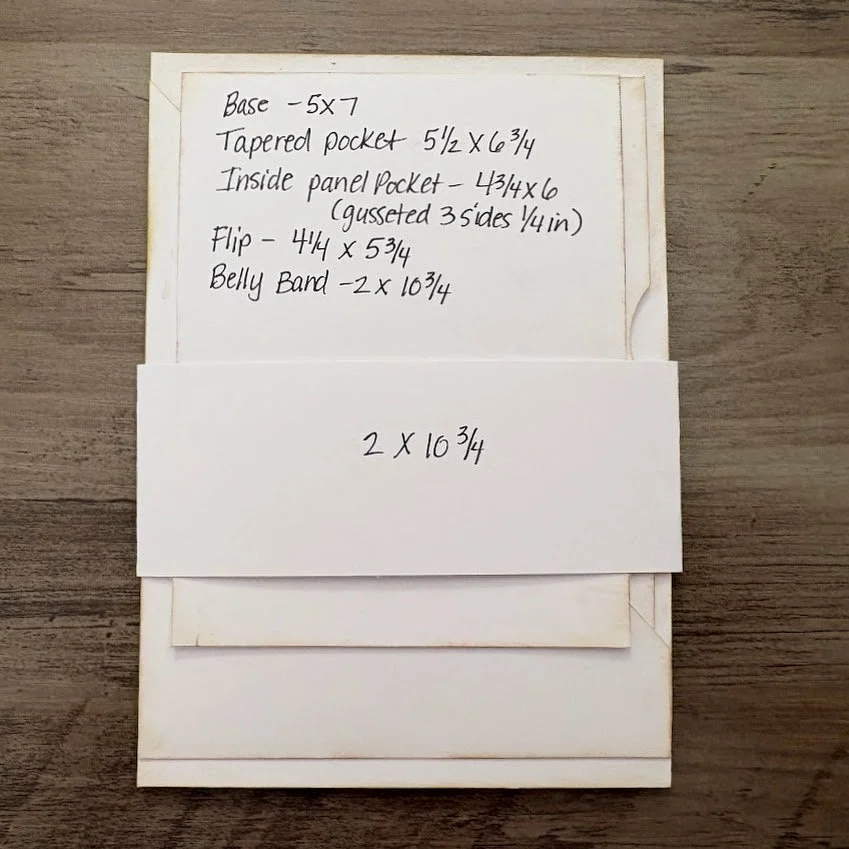 Base - 5x7
Tapered pocket 5 1/2 X 6 3/4
Inside panel Pocket - 4 3/4 x 6
(gusseted 3 sides 1/4 in)
Flip - 4 1/4 x 5 3/4
Belly Band - 2 x 10 3/4
2 X 10 3/4